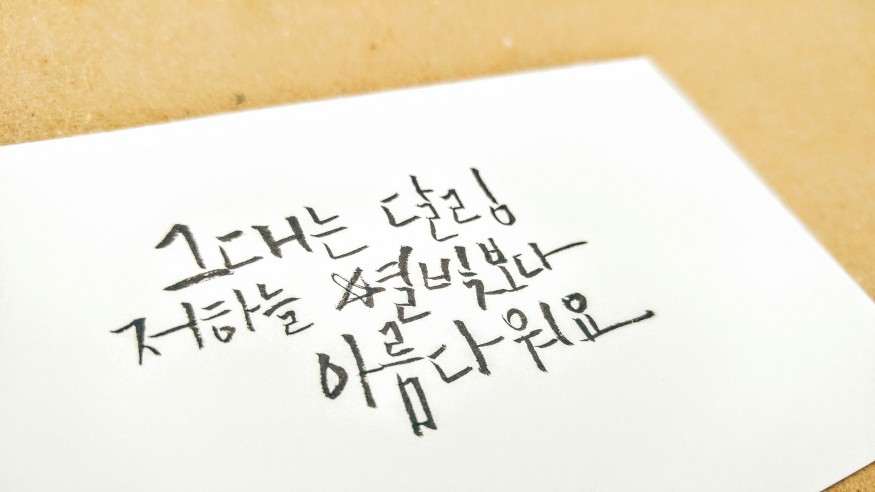 그대는 달링
저하늘 ☆별빛보다
아름다워요